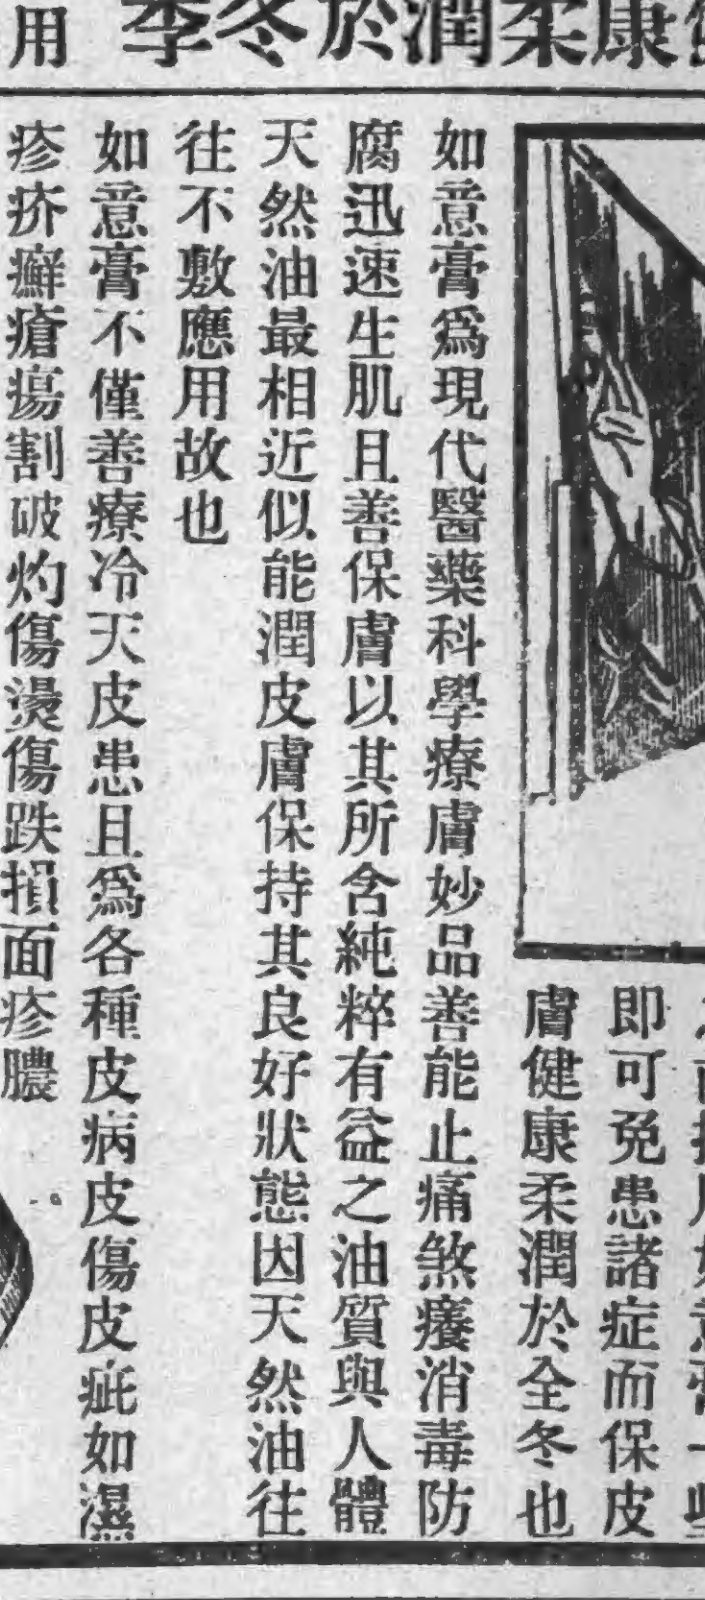 用 季冬於潤柔康
即可免患諸症而保皮
膚健康柔潤於全冬也
如意膏爲現代醫藥科學療膚妙品善能止痛煞癢消毒防
腐迅速生肌且善保膚以其所含純粹有益之油質與人體
天然油最相近似能潤皮膚保持其良好狀態因天然油往
往不敷應用故也
如意膏不僅善療冷天皮患且爲各種皮病皮傷皮疵如濕
疹疥癬瘡瘍割破灼傷燙傷跌損面疹膿